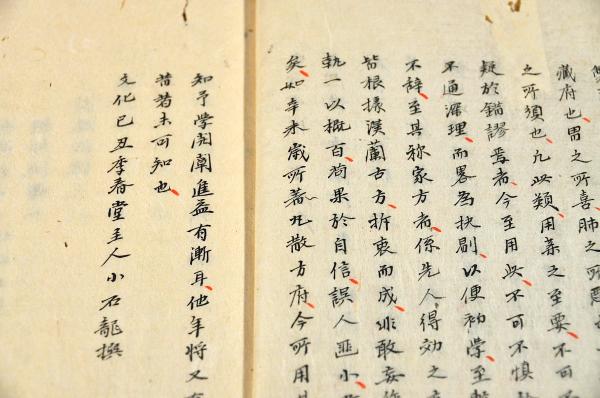 藏府也胃之所喜肺之所惡
之所須也凡此類用藥之至要不可
疑於錯謬焉者今至用此不可不慎
不通深理而畧為抉剔以便初学至
不辞至其称家方者係先人得効之
皆根據漢蘭古方折衷而成非敢妄
執一以概百苟果於自信誤人匪小
矣如辛未歲所著丸散方府今所用
知予学開闡進益有漸耳他年将又
昔若未可知也
文化己丑季春堂主人小石龍撰